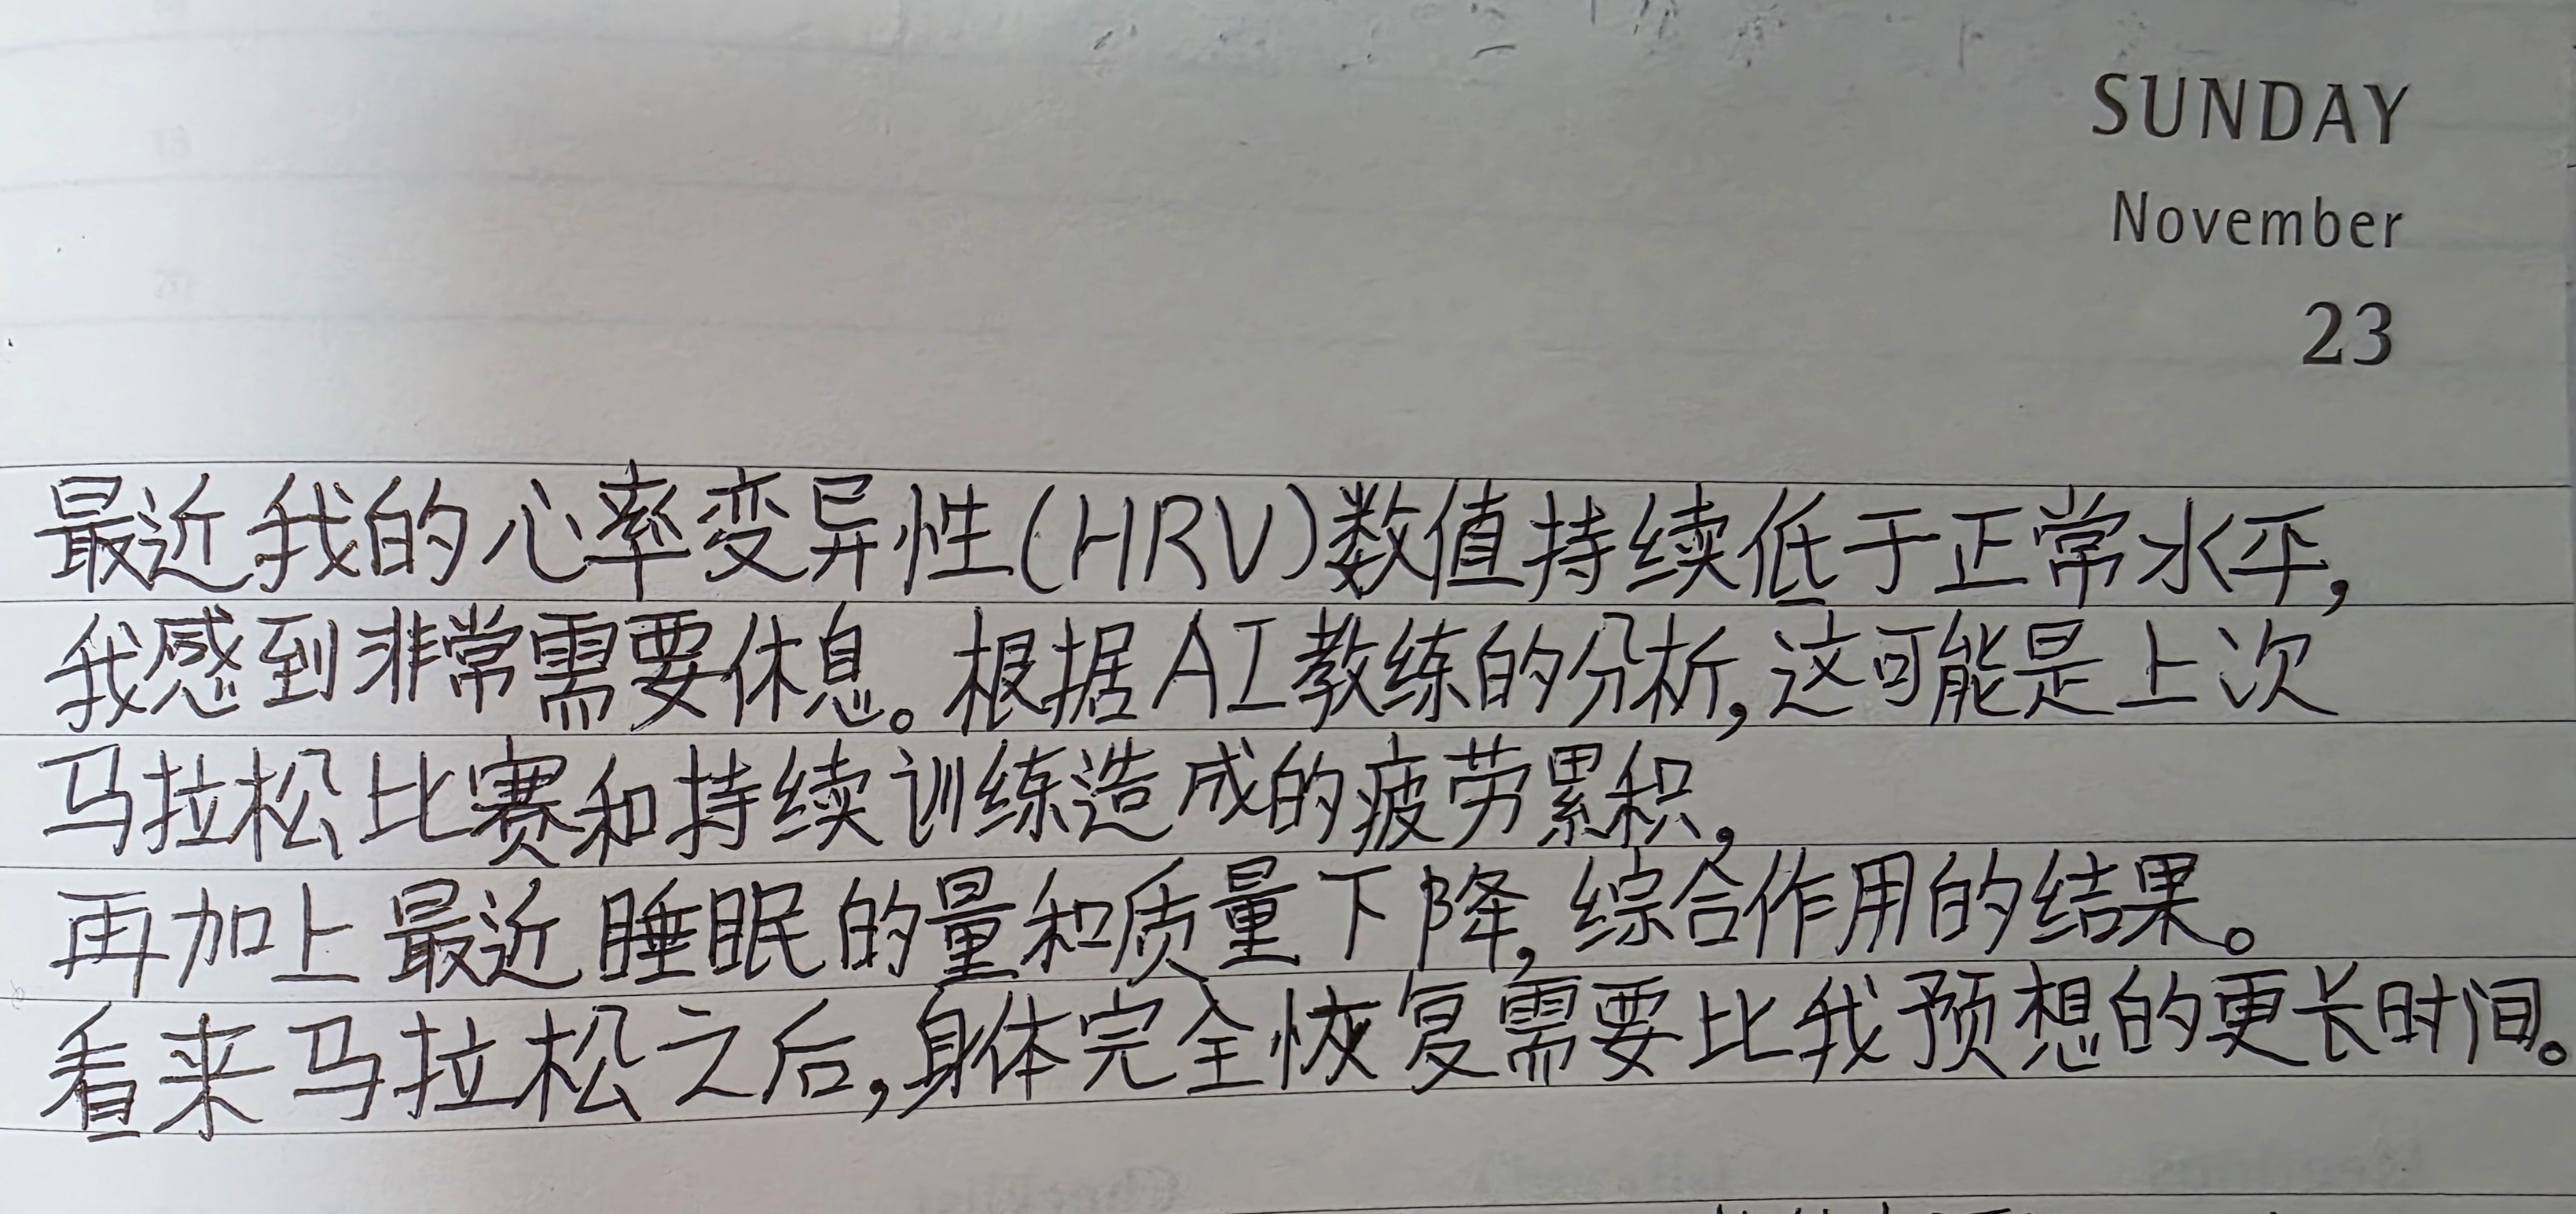 SUNDAY
November
23
最近我的心率变异性(HRV)数值持续低于正常水平,
我感到非常需要休息。根据AI教练的分析,这可能是上次
马拉松比赛和持续训练造成的疲劳累积,
再加上最近睡眠的量和质量下降,综合作用的结果。
看来马拉松之后,身体完全恢复需要比我预想的更长时间。